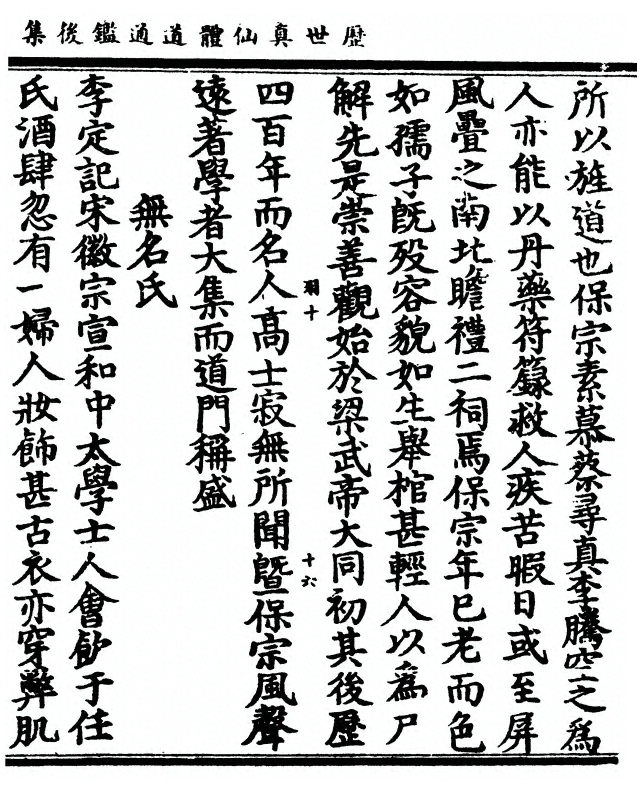 歷世真仙體道通鑑後集
所以旌道也保宗素慕蔡尋真李騰空之為
人亦能以丹藥符籙救人疾苦暇日或至屏
風疊之南北瞻禮二祠焉保宗年已老而色
如孺子既歿容貌如生舉棺甚輕人以為尸
解先是崇善觀始於梁武帝大同初其後歷
羽十
十六
四百年而名人高士寂無所聞暨保宗風聲
遠著學者大集而道門稱盛
無名氏
李定記宋徽宗宣和中太學士人會飲于任
氏酒肆忽有一婦人妝飾甚古衣亦穿弊肌